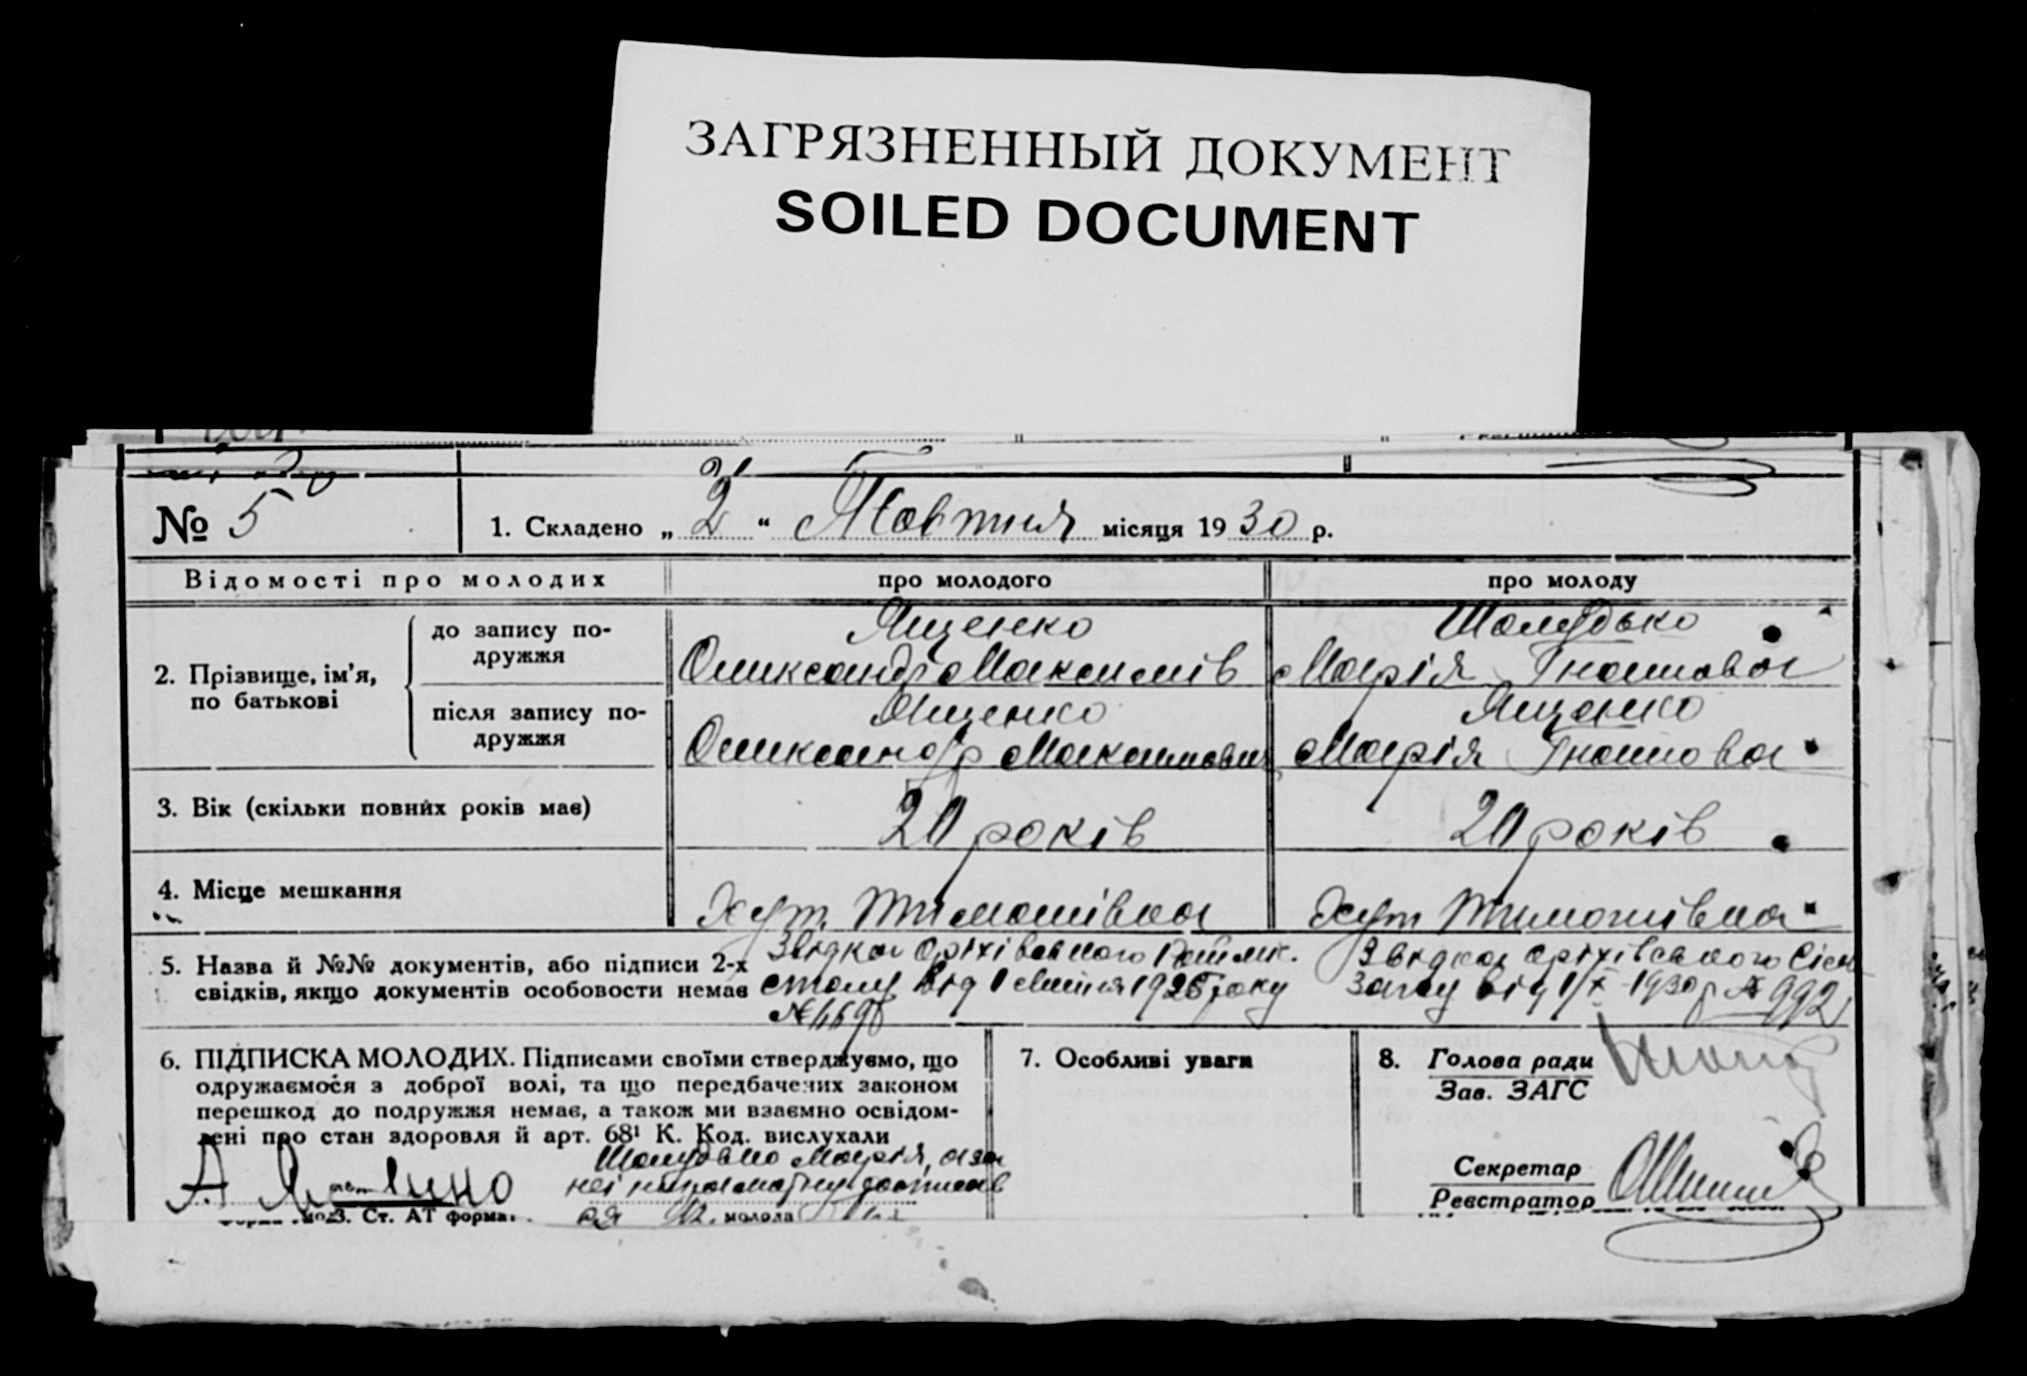 ЗАГРЯЗНЕННЫЙ ДОКУМЕНТ
SOILED DOCUMENT
№ 5
1. Складено „ 2 “ Жовтня місяця 19 30 р.
Відомості про молодих
про молодого
про молоду
2. Прізвище, ім'я, по батькові
до запису по-
дружжя
Ященко
Олександр Максимів
Шолудько
Марія Гнатова
після запису по-
дружжя
Ященко
Олександр Максимович
Ященко
Марія Гнатова
3. Вік (скільки повних років має)
20 років
20 років
4. Місце мешкання
Хут. Тимошівка
Хут Тимошівка
5. Назва й №№ документів, або підписи 2-х
свідків, якщо документів особовости немає
Звідка Оріхівського
столу від 1 року
Звідка Оріхівського
Загсу від 1/X 1930 р № 992
6. ПІДПИСКА МОЛОДИХ. Підписами своїми стверджуємо, що
одружаємося з доброї волі, та що передбачених законом
перешкод до подружжя немає, а також ми взаємно освідом-
лені про стан здоровля й арт. 68¹ К. Код. вислухали
Шолудько Марія, а за
неї
молода
Ст. АТ форма
7. Особливі уваги
8. Голова ради
Зав. ЗАГС
Секретар
Реєстратор